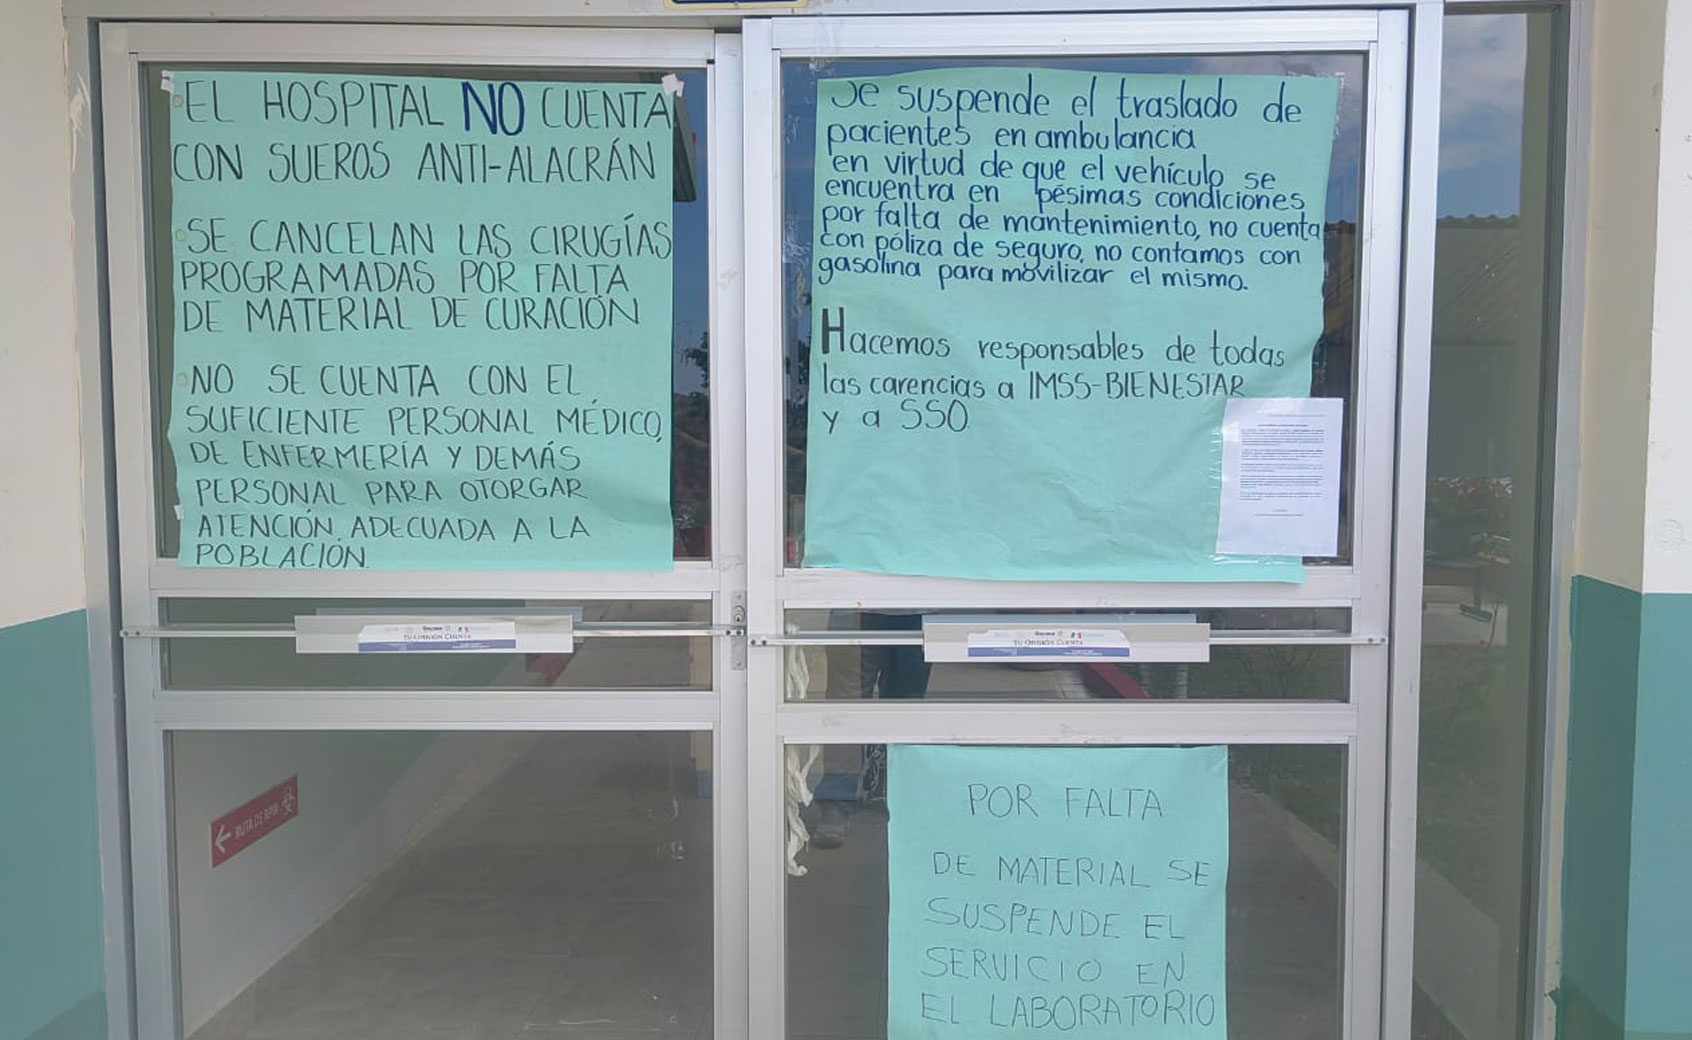 EL HOSPITAL NO CUENTA
CON SUEROS ANTI-ALACRÁN
SE CANCELAN LAS CIRUGÍAS
PROGRAMADAS POR FALTA
DE MATERIAL DE CURACIÓN
NO SE CUENTA CON EL
SUFICIENTE PERSONAL MÉDICO,
DE ENFERMERÍA Y DEMÁS
PERSONAL PARA OTORGAR
ATENCIÓN ADECUADA A LA
POBLACIÓN.
Se suspende el traslado de
pacientes en ambulancia
en virtud de que el vehículo se
encuentra en pésimas condiciones
por falta de mantenimiento, no cuenta
con póliza de seguro, no contamos con
gasolina para movilizar el mismo.
Hacemos responsables de todas
las carencias a IMSS-BIENESTAR
y a SSO.
TU OPINIÓN CUENTA
TU OPINIÓN CUENTA
POR FALTA
DE MATERIAL SE
SUSPENDE EL
SERVICIO EN
EL LABORATORIO